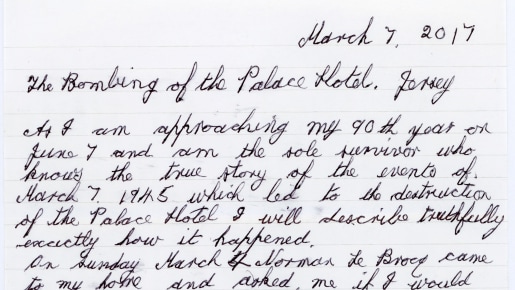 March 7, 2017
The Bombing of the Palace Hotel. Jersey
As I am approaching my 90th year on
June 7 and am the sole survivor who
knows the true story of the events of
March 7. 1945 which led to the destruction
of the Palace Hotel I will describe truthfully
exactly how it happened.
On Sunday March 4 Norman Le Brocq came
to my home and asked me if I would